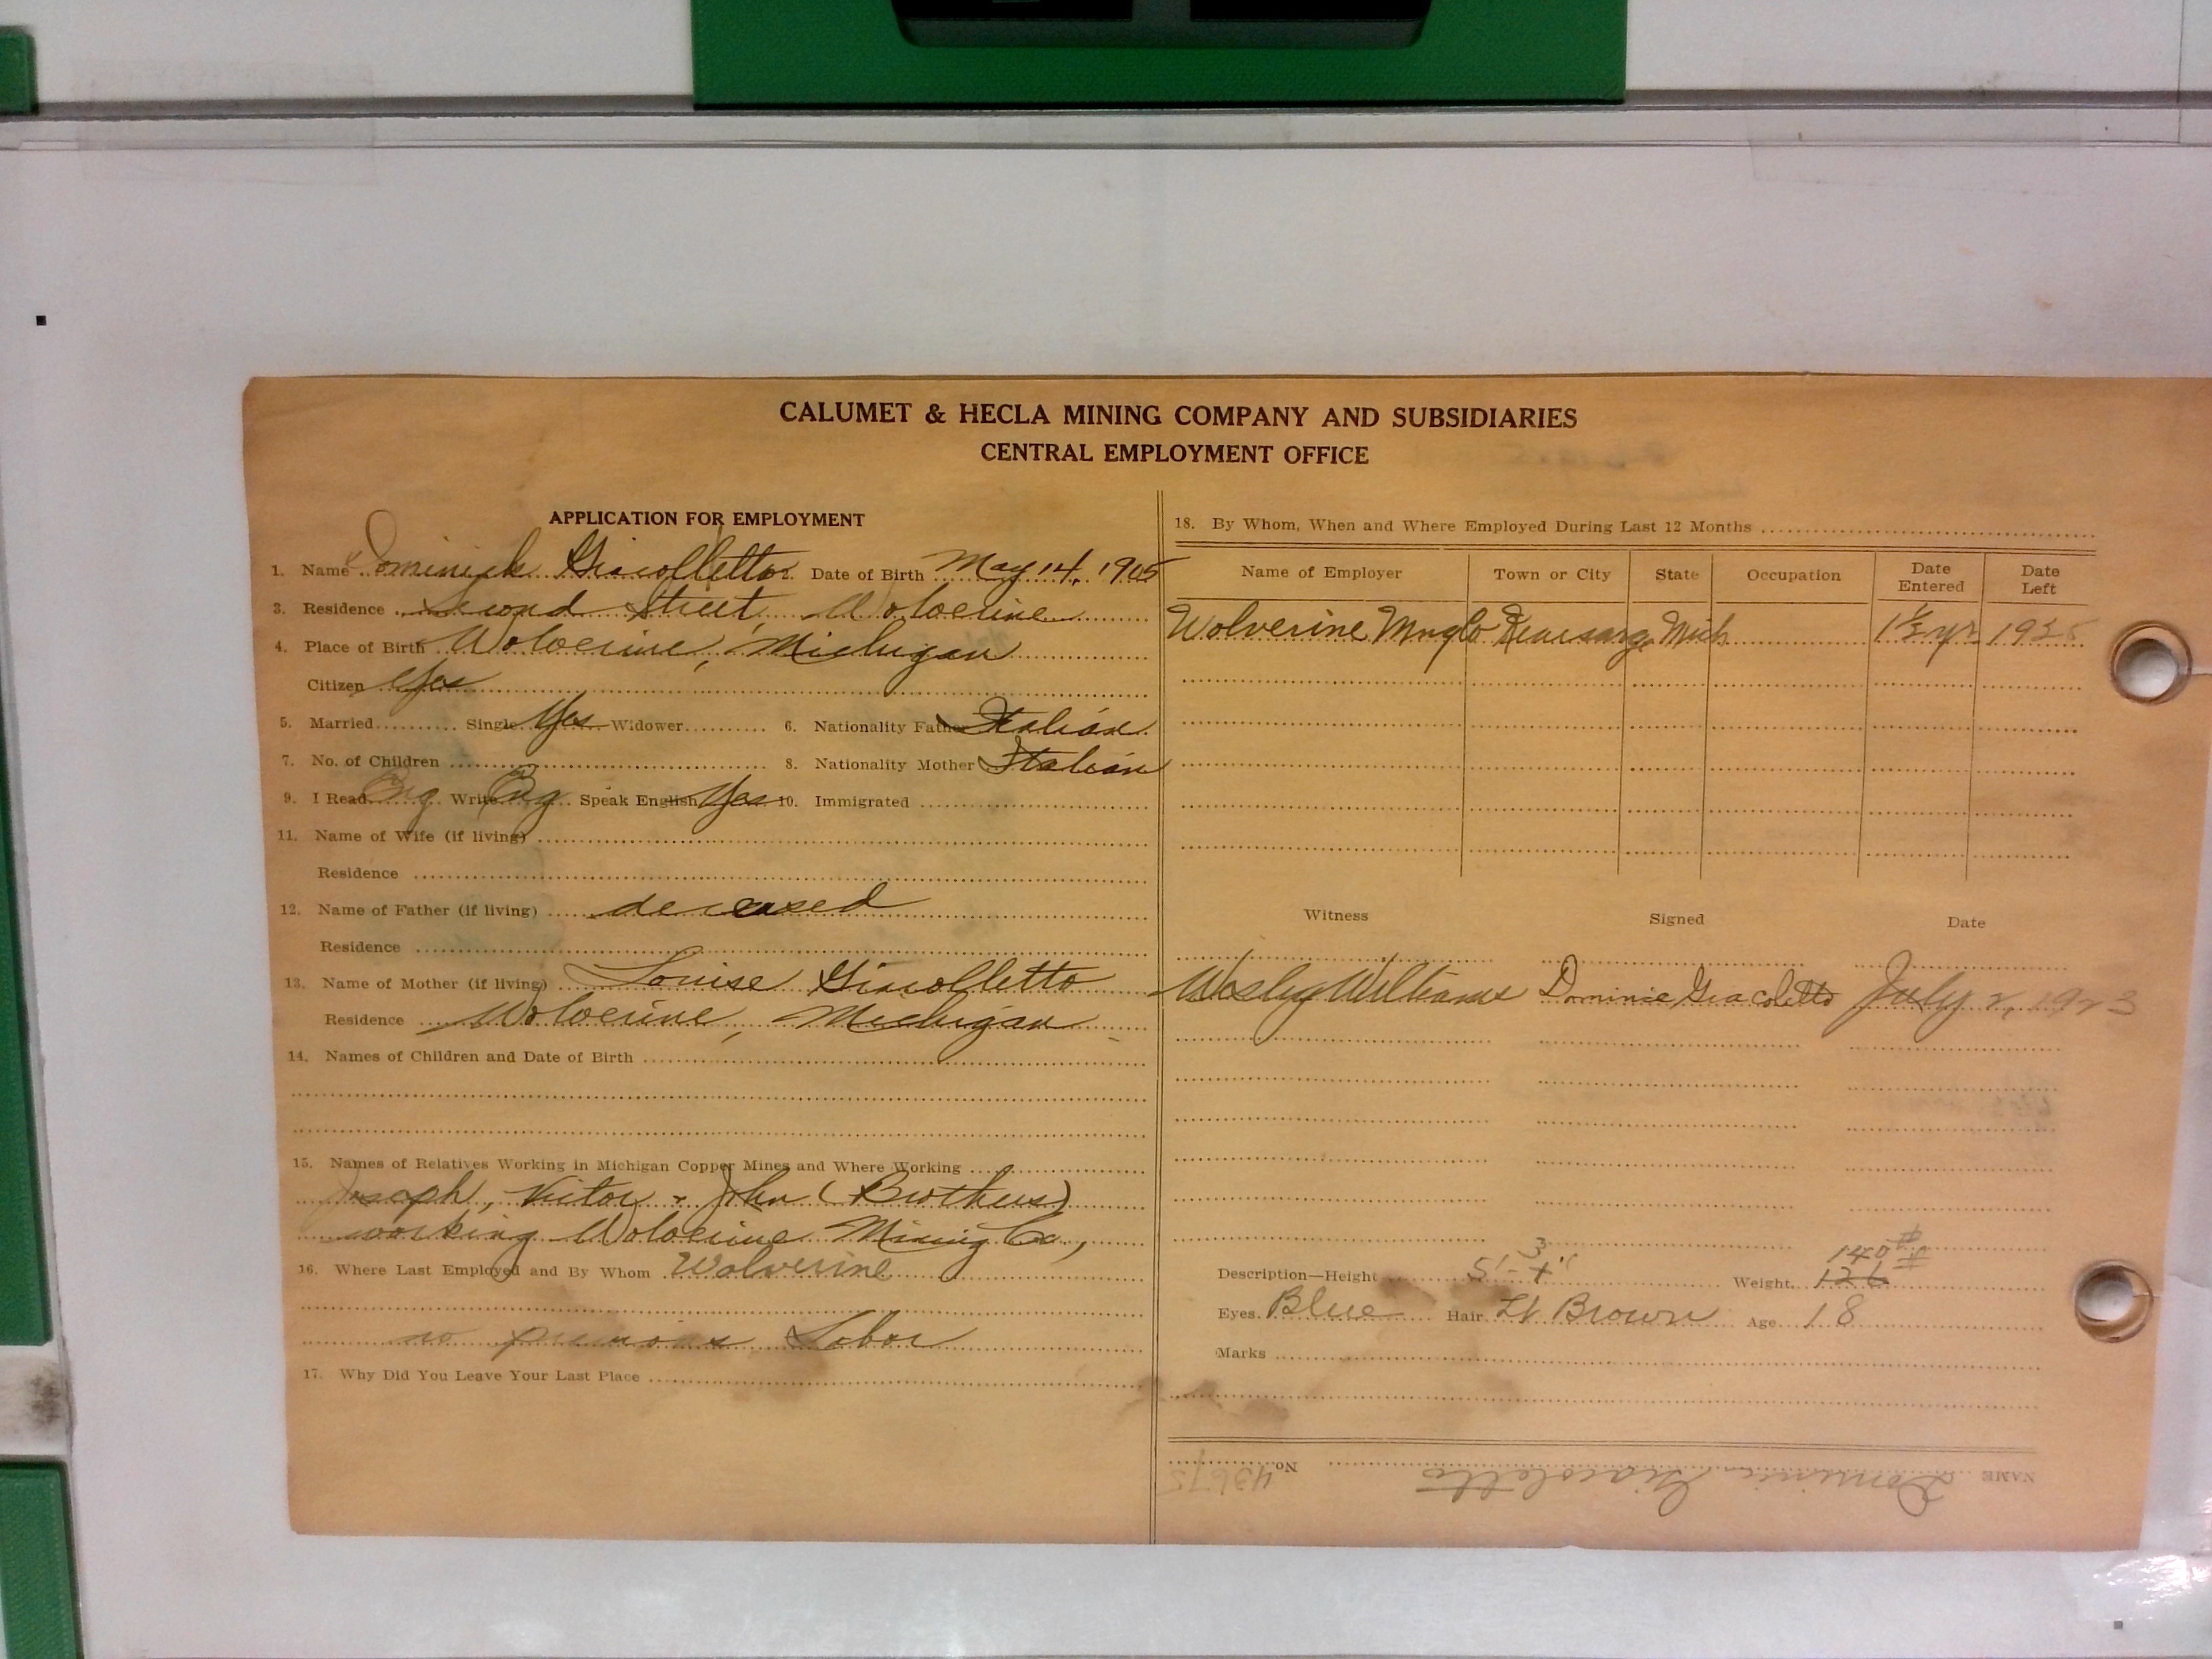 CALUMET & HECLA MINING COMPANY AND SUBSIDIARIES
CENTRAL EMPLOYMENT OFFICE
APPLICATION FOR EMPLOYMENT
1. Name Dominick Giacolletto Date of Birth May 14, 1905
3. Residence Second Street, Wolverine
4. Place of Birth Wolverine, Michigan
Citizen Yes
5. Married Single Yes Widower 6. Nationality Father Italian
7. No. of Children 8. Nationality Mother Italian
9. I Read Eng Write Eng Speak English Yes 10. Immigrated
11. Name of Wife (if living)
Residence
12. Name of Father (if living) deceased
Residence
13. Name of Mother (if living) Louise Giacolletto
Residence Wolverine, Michigan
14. Names of Children and Date of Birth
15. Names of Relatives Working in Michigan Copper Mines and Where Working
Joseph, Victor & John (Brothers)
working Wolverine Mining Co,
16. Where Last Employed and By Whom Wolverine
no previous Labor
17. Why Did You Leave Your Last Place
18. By Whom, When and Where Employed During Last 12 Months
Name of Employer Town or City State Occupation Date Entered Date Left
Wolverine Mng Co Kearsarge Mich 1½ yr 1925
Witness Signed Date
Wesley Williams Dominic Giacoletto July 2, 1923
3 140 #
Description—Height 5'- 4" Weight 126 #
Eyes Blue Hair Lt Brown Age 18
Marks
NAME Dominic Giacoletto No. 43675